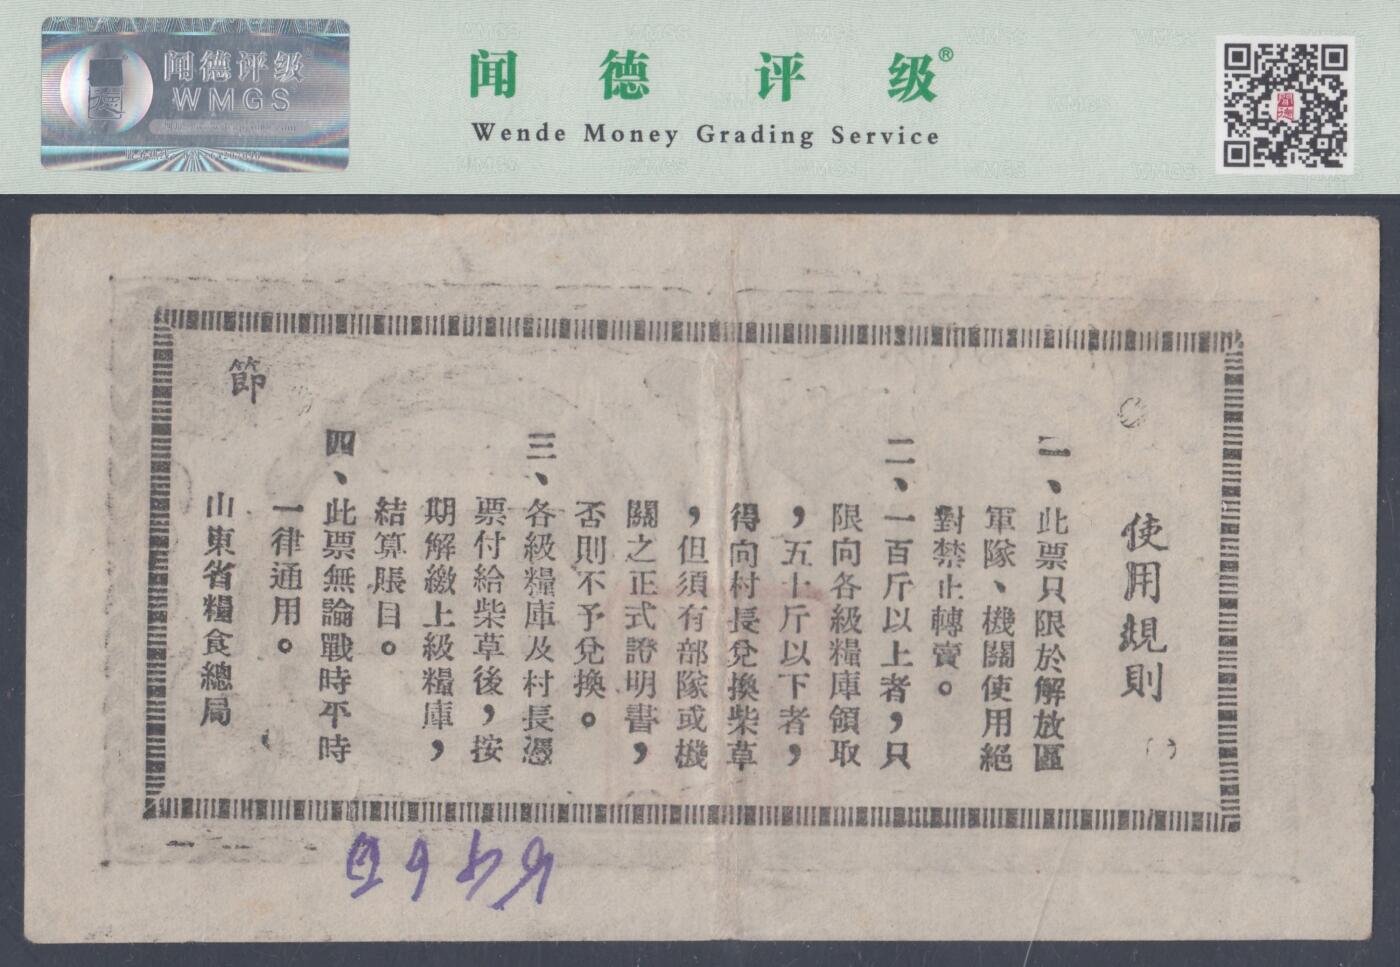 闻德评级
WMGS
闻德评级®
Wende Money Grading Service
使用規則
一、此票只限於解放區
軍隊、機關使用絕
對禁止轉賣。
二、一百斤以上者，只
限向各級糧庫領取
，五十斤以下者，
得向村長兌換柴草
，但須有部隊或機
關之正式證明書，
否則不予兌換。
三、各級糧庫及村長憑
票付給柴草後，按
期解繳上級糧庫，
結算賬目。
四、此票無論戰時平時
一律通用。
山東省糧食總局
節